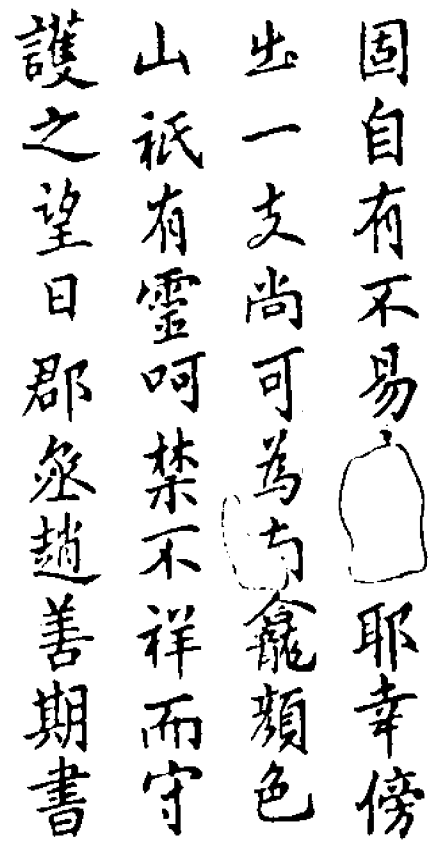 固自有不易耶幸傍
出一支尚可為龕顏色
山祇有靈呵禁不祥而守
護之望日郡丞趙善期書